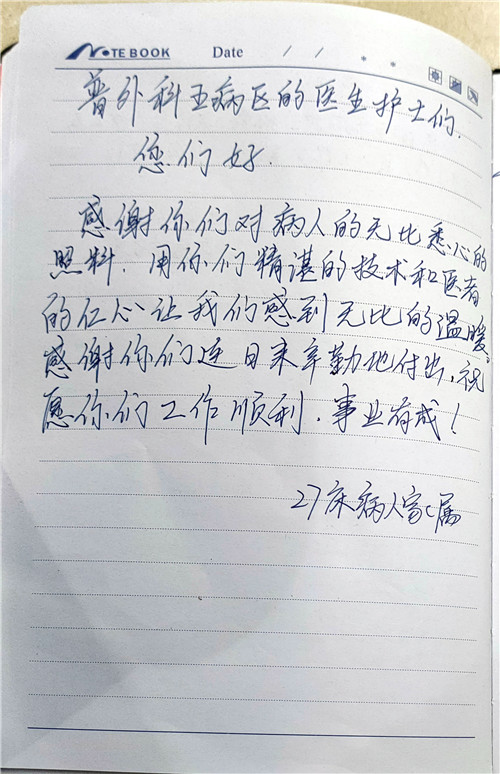 NOTEBOOK Date / / . .
普外科五病区的医生护士们.
您们好.
感谢你们对病人的无比悉心的
照料.用你们精谌的技术和医者
的仁心让我们感到无比的温暖,
感谢你们连日来辛勤地付出,祝
愿你们工作顺利.事业有成!
27床病人家属